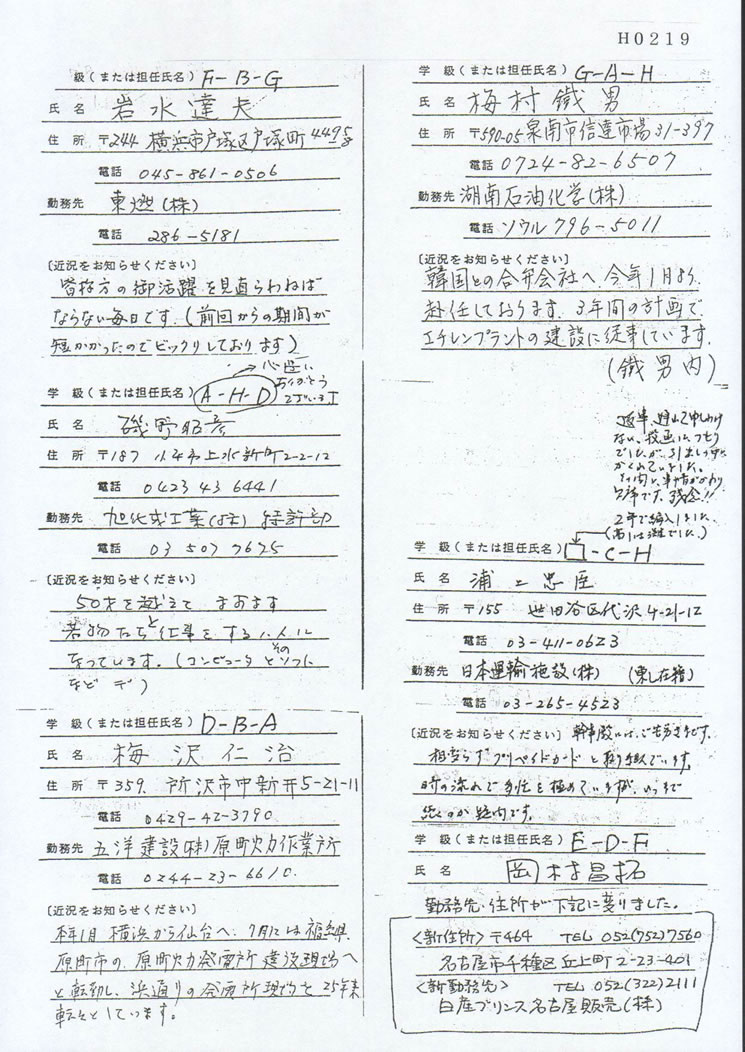 H0219
級(または担任氏名) F-B-G
氏名 岩水達夫
住所 〒244 横浜市戸塚区戸塚町4495-8
電話 045-861-0506
勤務先 東燃(株)
電話 286-5181
〔近況をお知らせください〕
皆様方の御活躍を見直らわねば
ならない毎日です。(前回からの期間が
短かかったのでビックリしております)
学級(または担任氏名) A-H-D
ありがとう
ございます
氏名 磯野昭彦
住所 〒187 小平市上水新町2-2-12
電話 0423 43 6441
勤務先 旭化成工業(株) 特許部
電話 03 507 7675
〔近況をお知らせください〕
50才を越えて ますます
若物たちと仕事をする
なっています。(コンピュータとそのソフト
など デ)
学級(または担任氏名) D-B-A
氏名 梅沢仁治
住所 〒359. 所沢市中新井5-21-11
電話 0429-42-3790
勤務先 五洋建設(株)原町火力作業所
電話 0244-23-6610.
〔近況をお知らせください〕
本年1月 横浜から仙台へ、7月には福島県
原町市の、原町火力発電所建設現場へ
と転勤し、浜通りの発電所現場を25年来
転々としています。
学級(または担任氏名) G-A-H
氏名 梅村鐵男
住所 〒590-05 泉南市信達市場31-397
電話 0724-82-6507
勤務先 湖南石油化学(株)
電話 ソウル 796-5011
〔近況をお知らせください〕
韓国との合弁会社へ、今年1月から
赴任しております。3年間の計画で
エチレンプラントの建設に従事しています。
(鐵男内)
返事、遅れて申しわけ
ない、投函したつもり
でしたが、引出しの中に
かくれていました。
欠席です。残念!!
2年で編入しました。
学級(または担任氏名) □-C-H
氏名 浦上忠
住所 〒155 世田谷区代沢4-21-12
電話 03-411-0623
勤務先 日本運輸施設(株)
電話 03-265-4523
〔近況をお知らせください〕 幹事殿には、ご苦労さまです。
相変らずプリペイドカードと取り組んでいます。
時の流れで多忙を極めていますが、いつまで
続くのか疑問です。
学級(または担任氏名) E-D-F
氏名 岡村昌拓
勤務先・住所が下記に変りました。
<新住所> 〒464 TEL 052(752)7560
名古屋市千種区丘上町2-23-401
<新勤務先> TEL 052(322)2111
日産プリンス名古屋販売(株)